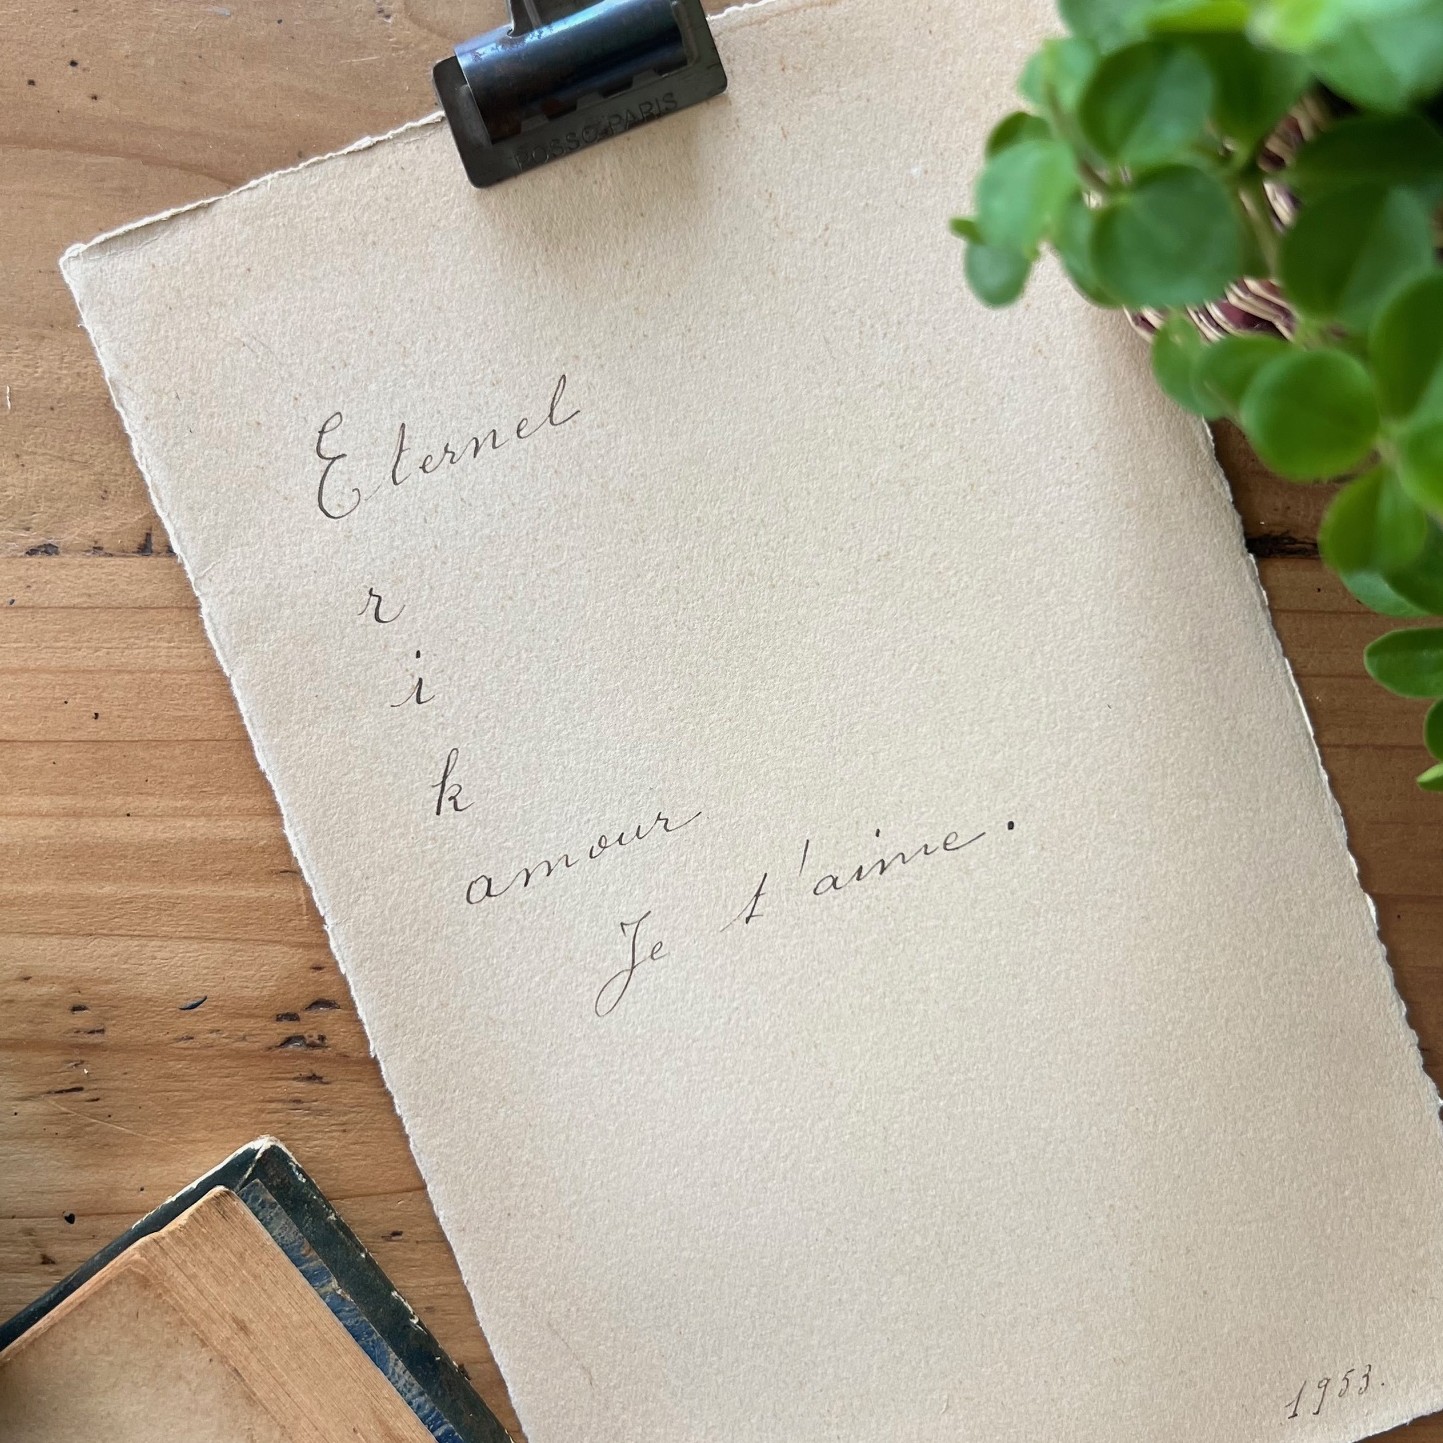 POSSO PARIS
Eternel
r
i
k
amour
Je t'aime.
1953.